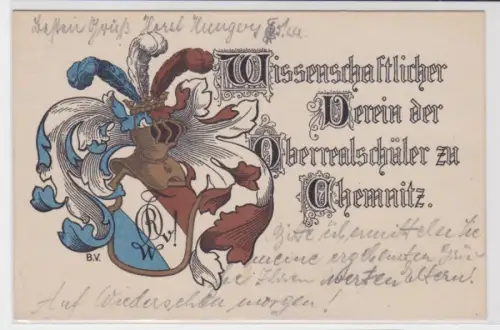 Besten Gruß Horst Hunger
Wissenschaftlicher
Verein der
Oberrealschüler zu
Chemnitz.
B.V.
W
Bitte übermitteln Sie
meine ergebensten Grü-
ße Ihren werten Eltern.
Auf Wiedersehn morgen!